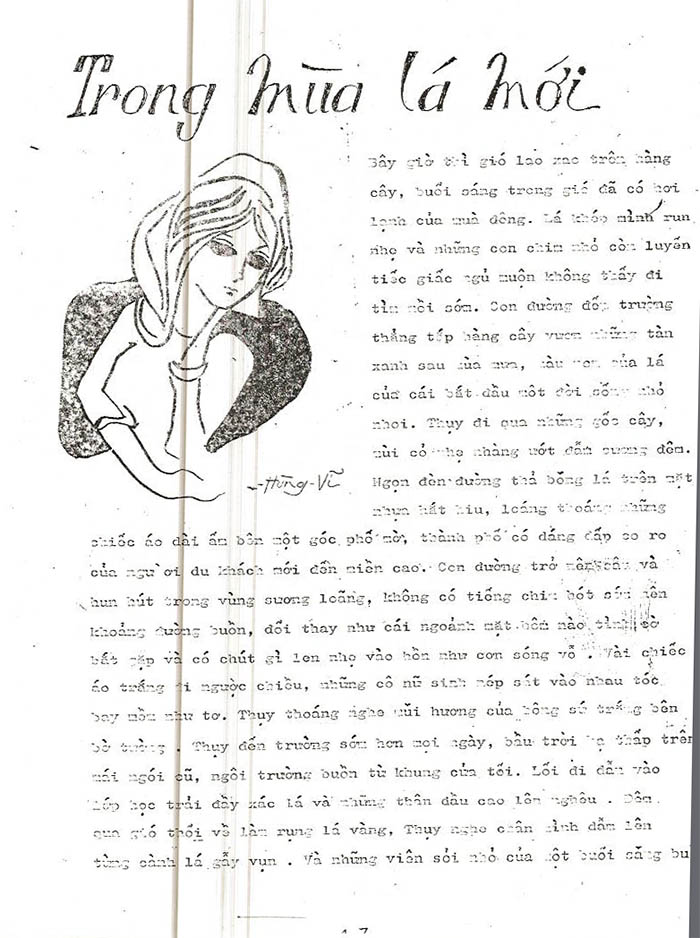 Trong mùa lá mới
Bây giờ thì gió lao xao trên hàng
cây, buổi sáng trong gió đã có hơi
lạnh của muà đông. Lá khép mình run
nhẹ và những con chim nhỏ còn luyến
tiếc giấc ngủ muộn không thấy đi
tìm mồi sớm. Con đường đến trường
thẳng tắp hàng cây vươn những tàn
xanh sau mùa mưa, màu non của lá
của cái bắt đầu một đời sống nhỏ
nhoi. Thụy đi qua những gốc cây,
mùi cỏ nhẹ nhàng ướt đẫm sương đêm.
Ngọn đèn đường thả bóng lá trên mặt
nhựa hắt hiu, loáng thoáng những
-Hùng-Vĩ
chiếc áo dài ấm bên một góc phố mờ, thành phố có dáng dấp co ro
của người du khách mới đến miền cao. Con đường trở nên sâu và
hun hút trong vùng sương loãng, không có tiếng chim hót sớm nên
khoảng đường buồn, đổi thay như cái ngoảnh mặt hôm nào tình cờ
bắt gặp và có chút gì len nhẹ vào hồn như cơn sóng vỗ . Vài chiếc
áo trắng đi ngược chiều, những cô nữ sinh nép sát vào nhau tóc
bay mềm như tơ. Thụy thoáng nghe mùi hương của bông sứ trắng bên
bờ tường . Thụy đến trường sớm hơn mọi ngày, bầu trời hạ thấp trên
mái ngói cũ, ngôi trường buồn từ khung cửa tối. Lối đi dẫn vào
lớp học trải đầy xác lá và những thân dầu cao lêu nghêu . Đêm
qua gió thổi về làm rụng lá vàng, Thụy nghe chân mình dẫm lên
từng cành lá gẫy vụn . Và những viên sỏi nhỏ của một buổi sáng bu